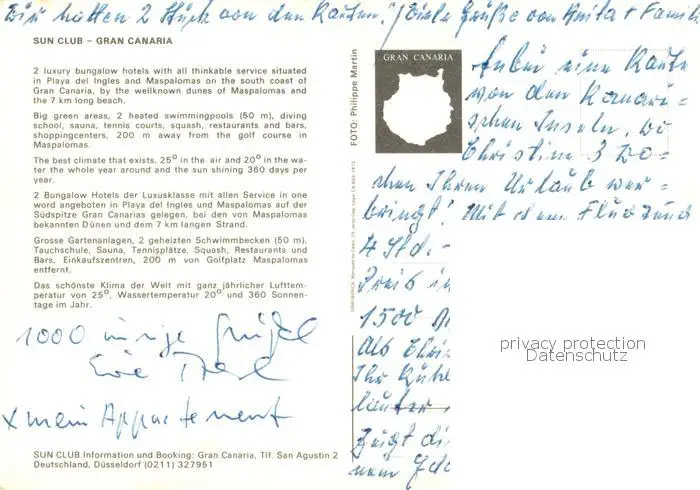 Wir hatten 2 Stück von den Karten! / Viele Grüße von Anita + Famili
SUN CLUB – GRAN CANARIA
2 luxury bungalow hotels with all thinkable service situated
in Playa del Ingles and Maspalomas on the south coast of
Gran Canaria, by the wellknown dunes of Maspalomas and
the 7 km long beach.
Big green areas, 2 heated swimmingpools (50 m), diving
school, sauna, tennis courts, squash, restaurants and bars,
shoppingcenters, 200 m away from the golf course in
Maspalomas.
The best climate that exists, 25° in the air and 20° in the wa-
ter the whole year around and the sun shining 360 days per
year.
2 Bungalow Hotels der Luxusklasse mit allen Service in one
word angeboten in Playa del Ingles und Maspalomas auf der
Südspitze Gran Canarias gelegen, bei den von Maspalomas
bekannten Dünen und dem 7 km langen Strand.
Grosse Gartenanlagen, 2 geheizten Schwimmbecken (50 m),
Tauchschule, Sauna, Tennisplätze, Squash, Restaurants und
Bars, Einkaufszentren, 200 m von Golfplatz Maspalomas
entfernt.
Das schönste Klima der Welt mit ganz jährlicher Lufttem-
peratur von 25°, Wassertemperatur 20° und 360 Sonnen-
tage im Jahr.
1000 innige Grüße
x mein Appartement
SUN CLUB Information und Booking: Gran Canaria, Tlf. San Agustin 2
Deutschland, Düsseldorf (0211) 327951
FOTO: Philippe Martin
GRAN CANARIA
Anbei eine Karte
von den Kanari=
schen Inseln, wo
Christine 3 Wo=
chen Ihren Urlaub ver=
bringt! Mit dem Flug rund
4 Std. -
Preis in
1500
Als Chri
Ihr
lauter
zeigt di
privacy protection
Datenschutz